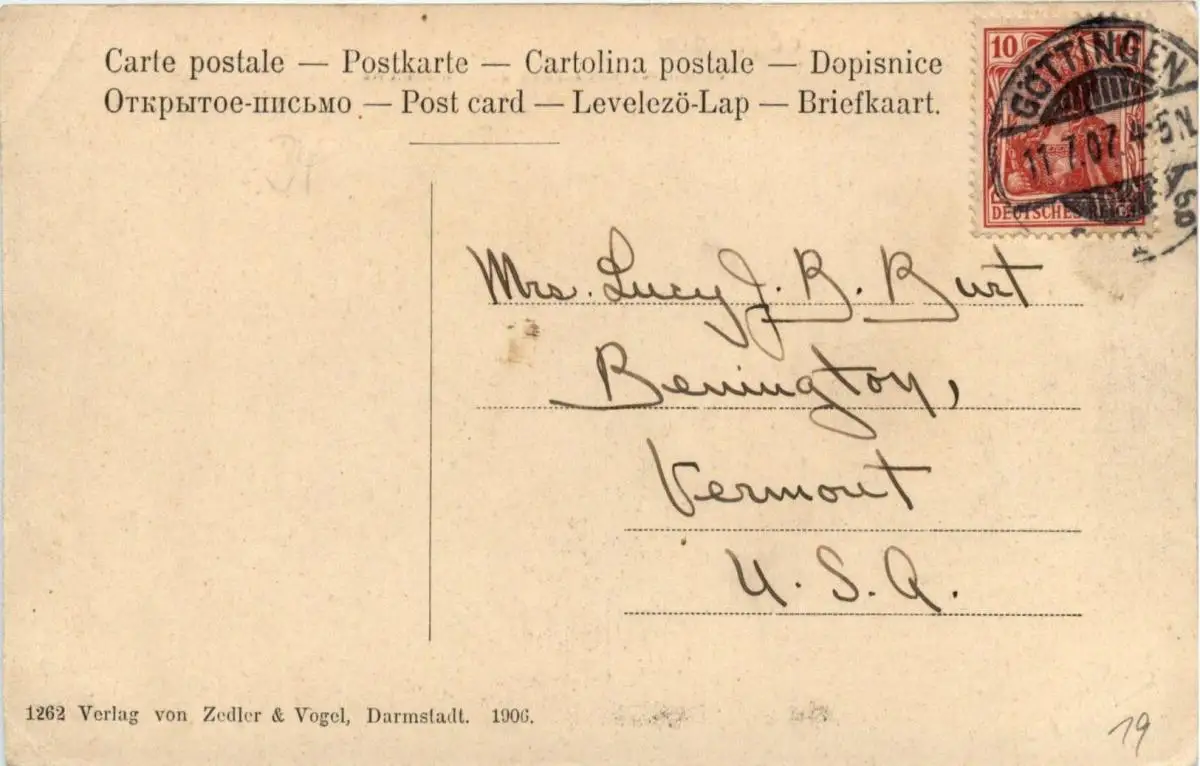 Carte postale — Postkarte — Cartolina postale — Dopisnice
Открытое-письмо — Post card — Levelezö-Lap — Briefkaart.
10
GÖTTINGEN
11.7.07. 4-5N
DEUTSCHES REICH
Mrs. Lucy J. B. Burt
Bennington,
Vermont
U. S. A.
1262 Verlag von Zedler & Vogel, Darmstadt. 1906.
19